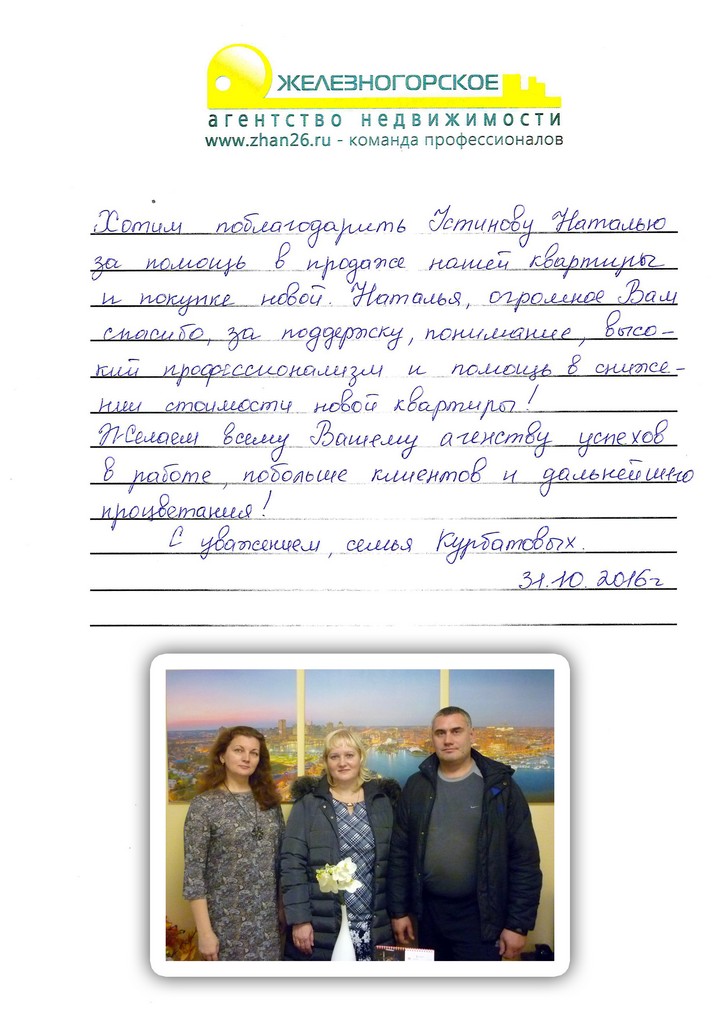 ЖЕЛЕЗНОГОРСКОЕ
агентство недвижимости
www.zhan26.ru - команда профессионалов
Хотим поблагодарить Устинову Наталью
за помощь в продаже нашей квартиры
и покупке новой. Наталья, огромное Вам
спасибо, за поддержку, понимание, высо-
кий профессионализм и помощь в сниже-
нии стоимости новой квартиры!
Желаем всему Вашему агенству успехов
в работе, побольше клиентов и дальнейшего
процветания!
С уважением, семья Курбатовых.
31.10.2016г